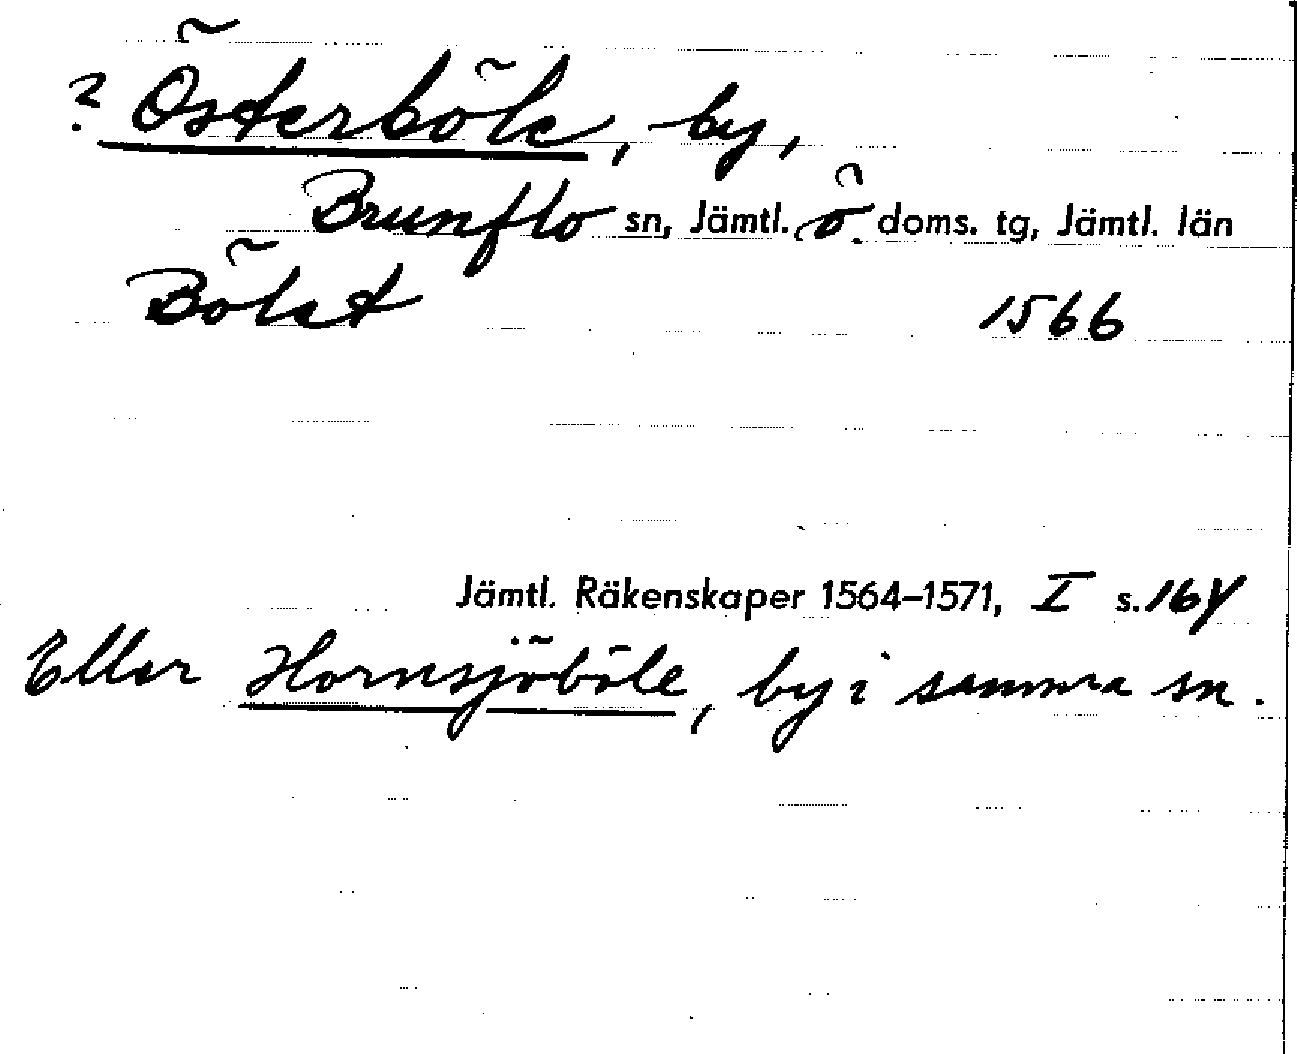 ? Österböle, by,
Brunflo sn, Jämtl. ö. doms. tg, Jämtl. län
Bölet 1566
Jämtl. Räkenskaper 1564–1571, I s. 164
Eller Hornsjöböle, by i samma sn.